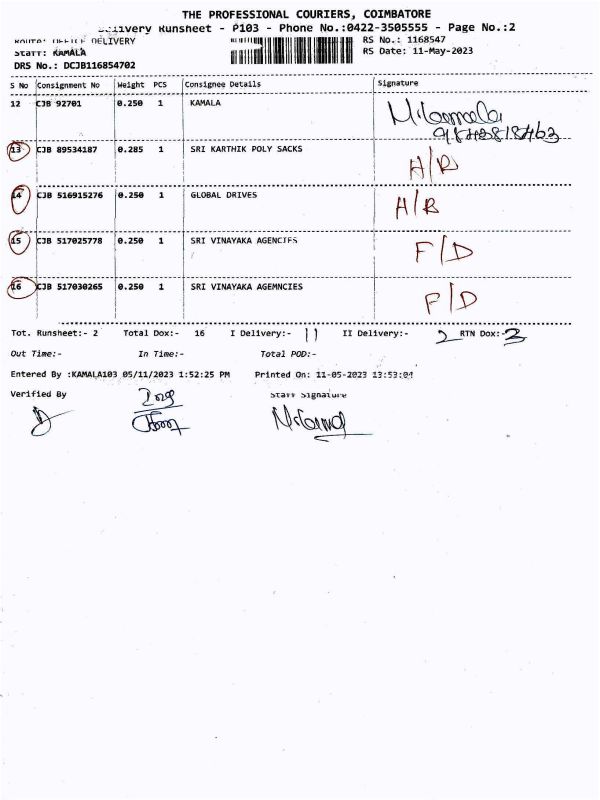 THE PROFESSIONAL COURIERS, COIMBATORE
Delivery Runsheet - P103 - Phone No.:0422-3505555 - Page No.:2
Route: OFFICE DELIVERY RS No.: 1168547
Staff: KAMALA RS Date: 11-May-2023
DRS No.: DCJB116854702
S No Consignment No Weight PCS Consignee Details Signature
12 CJB 92701 0.250 1 KAMALA
13 CJB 89534187 0.285 1 SRI KARTHIK POLY SACKS H/R
14 CJB 516915276 0.250 1 GLOBAL DRIVES H/R
15 CJB 517025778 0.250 1 SRI VINAYAKA AGENCIES F/D
16 CJB 517030265 0.250 1 SRI VINAYAKA AGEMNCIES F/D
Tot. Runsheet:- 2 Total Dox:- 16 I Delivery:- 11 II Delivery:- 2 RTN Dox:- 3
Out Time:- In Time:- Total POD:-
Entered By :KAMALA103 05/11/2023 1:52:25 PM Printed On: 11-05-2023 13:53:04
Verified By Staff Signature